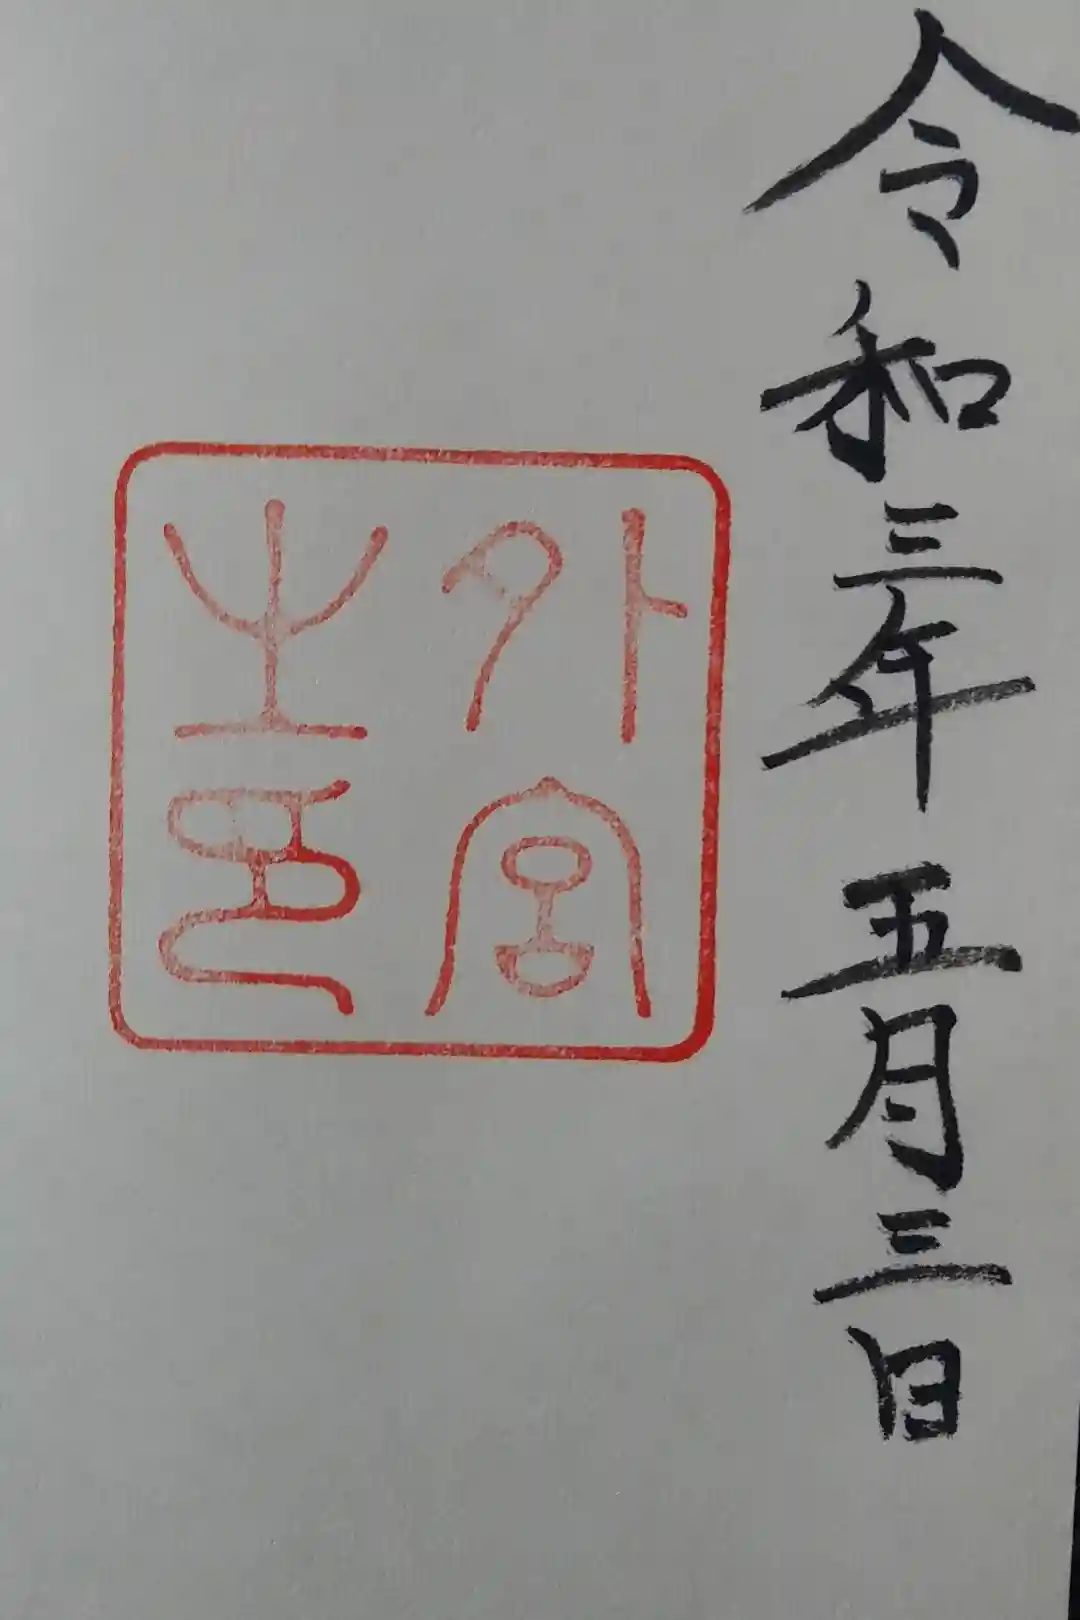 令和三年五月三日
外宮
之印